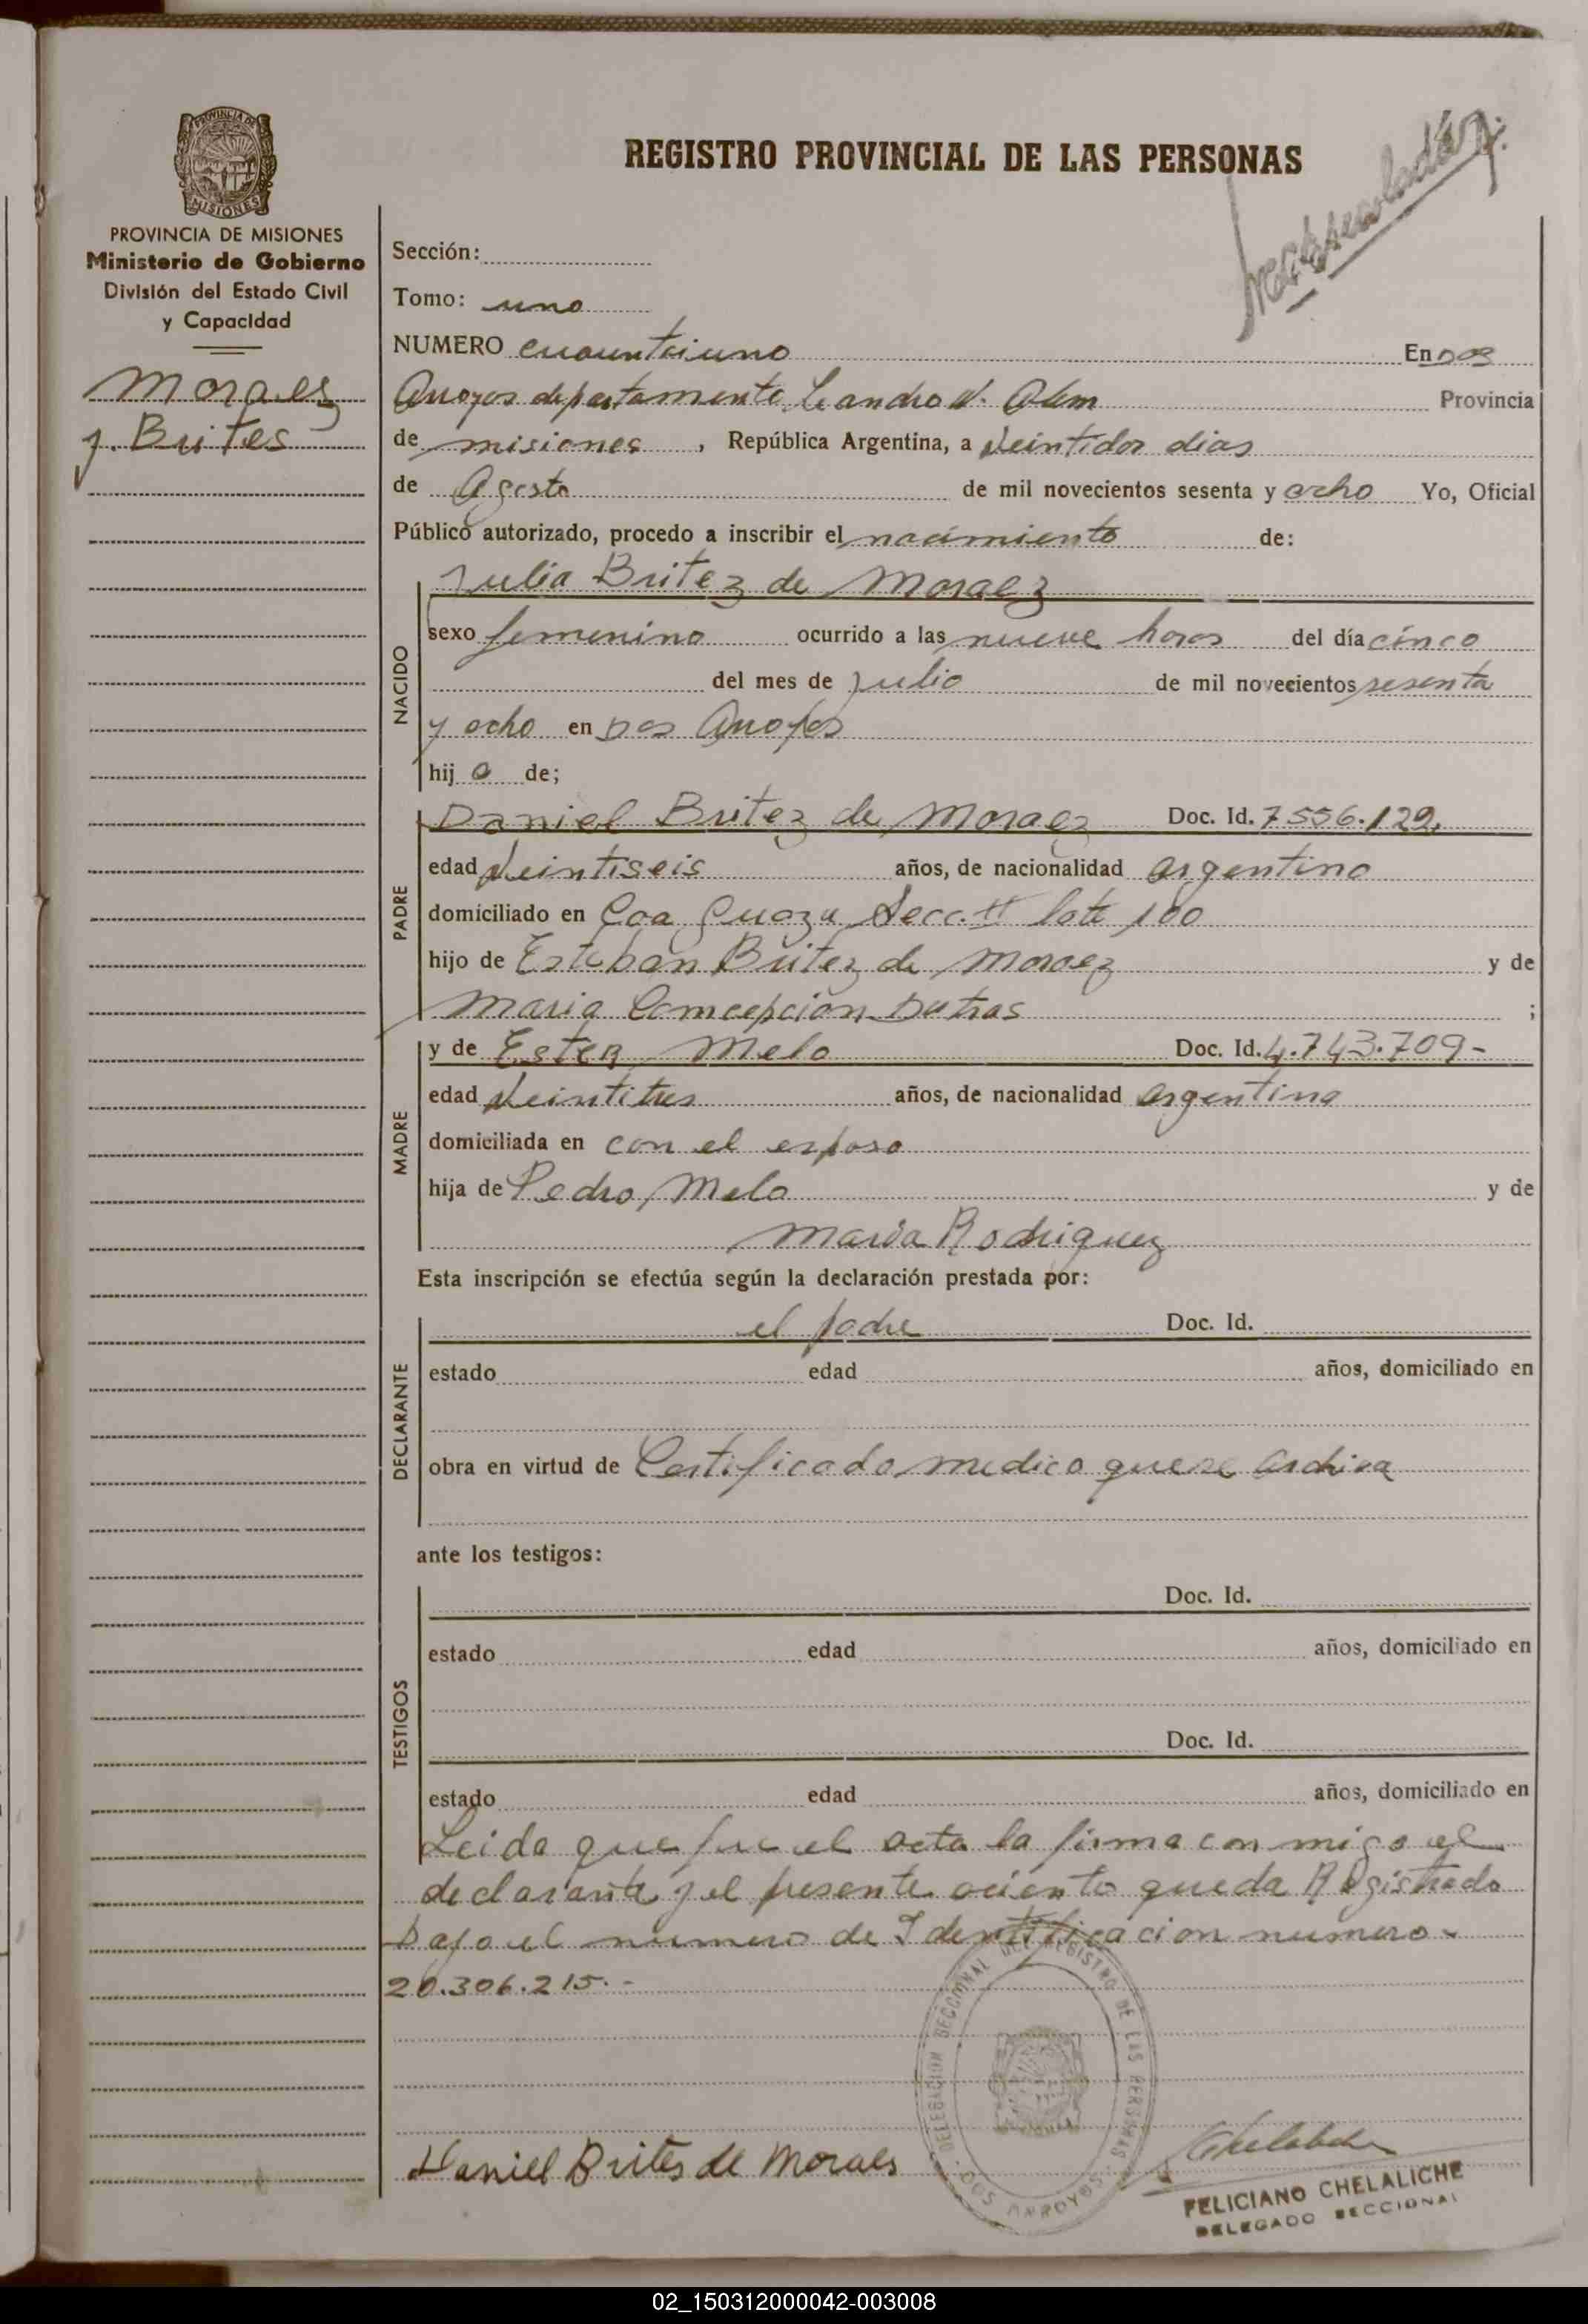 PROVINCIA DE
MISIONES
PROVINCIA DE MISIONES
Ministerio de Gobierno
División del Estado Civil
y Capacidad
Moraez
J. Brites
REGISTRO PROVINCIAL DE LAS PERSONAS
Sección:
Tomo: uno
NUMERO cuarentaiuno En Dos
Arroyos departamento Leandro N. Alem Provincia
de misiones, República Argentina, a veintidos dias
de Agosto de mil novecientos sesenta y ocho Yo, Oficial
Público autorizado, procedo a inscribir el nacimiento de:
NACIDO
Julia Britez de Moraez
sexo femenino ocurrido a las nueve horas del día cinco
del mes de julio de mil novecientos sesenta
y ocho en Dos Arroyos
hij a de;
PADRE
Daniel Britez de Moraez Doc. Id. 7556.129,
edad veintiseis años, de nacionalidad argentino
domiciliado en Coa Guazu Secc. II lote 100
hijo de Esteban Britez de Moraez y de
Maria Comcepcion Dutras ;
MADRE
y de Ester Melo Doc. Id. 4.743.709-
edad veintitres años, de nacionalidad argentina
domiciliada en con el esposo
hija de Pedro Melo y de
Maria Rodriguez
Esta inscripción se efectúa según la declaración prestada por:
DECLARANTE
el padre Doc. Id.
estado edad años, domiciliado en
obra en virtud de Certificado medico que se archiva
ante los testigos:
TESTIGOS
Doc. Id.
estado edad años, domiciliado en
Doc. Id.
estado edad años, domiciliado en
Leida que fue el acta la firma con migo el
declarante y el presente aciento queda Registrado
Bajo el numero de Identificacion numero-
20.306.215.-
DELEGACION SECCIONAL DEL REGISTRO DE LAS PERSONAS
DOS ARROYOS
Daniel Brites de Moraes
FELICIANO CHELALICHE
DELEGADO SECCIONAL
02_150312000042-003008